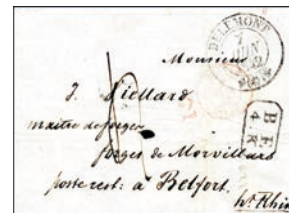 DELEMONT
7
JUIN
Monsieur
J. Viellard
maître de forges
forges de Morvillars
poste rest: à Belfort.
ht. Rhin
B. F.
4. K.